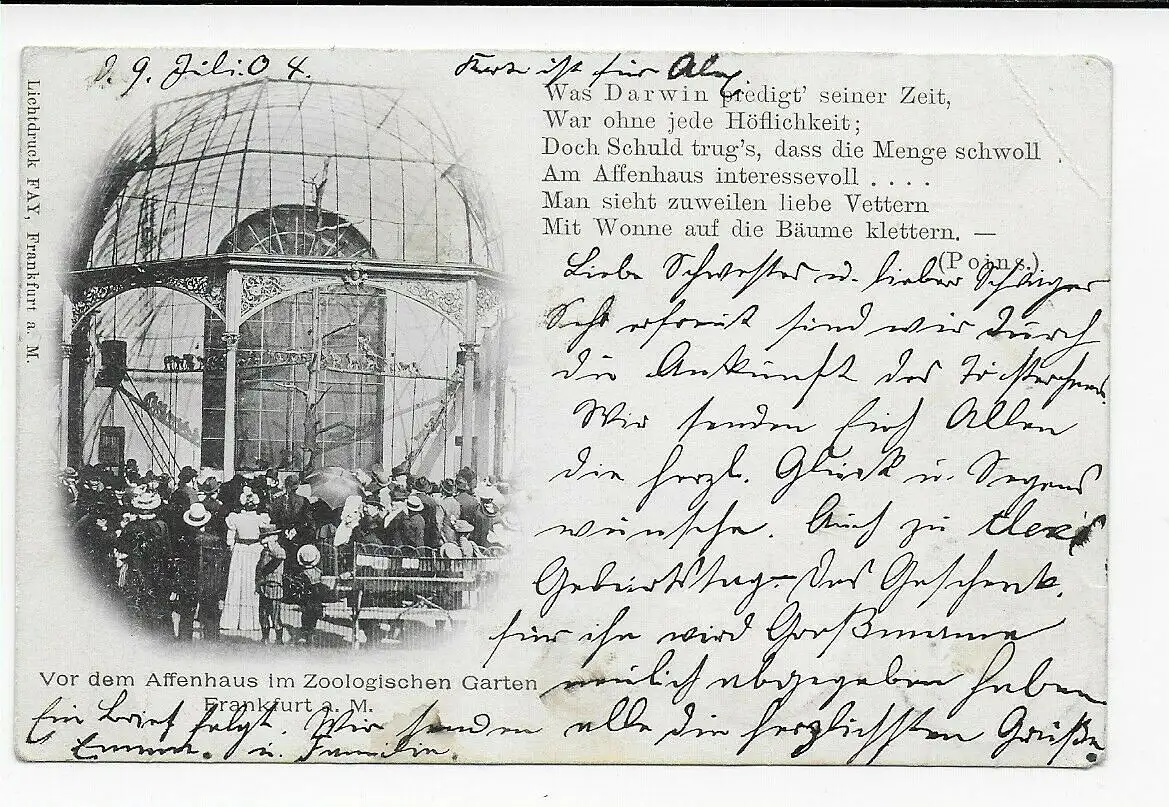 d. 9. Juli. 04.
Karte ist für Alex.
Lichtdruck FAY, Frankfurt a. M.
Was Darwin predigt' seiner Zeit,
War ohne jede Höflichkeit;
Doch Schuld trug's, dass die Menge schwoll
Am Affenhaus interessevoll . . . .
Man sieht zuweilen liebe Vettern
Mit Wonne auf die Bäume klettern. —
(Poins.)
Liebe Schwester u. lieber Schwager
Sehr erfreut sind wir durch
die Ankunft des Töchterchens.
Wir senden Euch Allen
die herzl. Glück u. Segens
wünsche. Auch zu Alex's
Geburtstag. Das Geschenk
für ihn wird Großmama
neulich abgegeben haben
Vor dem Affenhaus im Zoologischen Garten
Frankfurt a. M.
Ein Brief folgt. Wir senden alle die herzlichsten Grüße.
Emma. u. Familie.